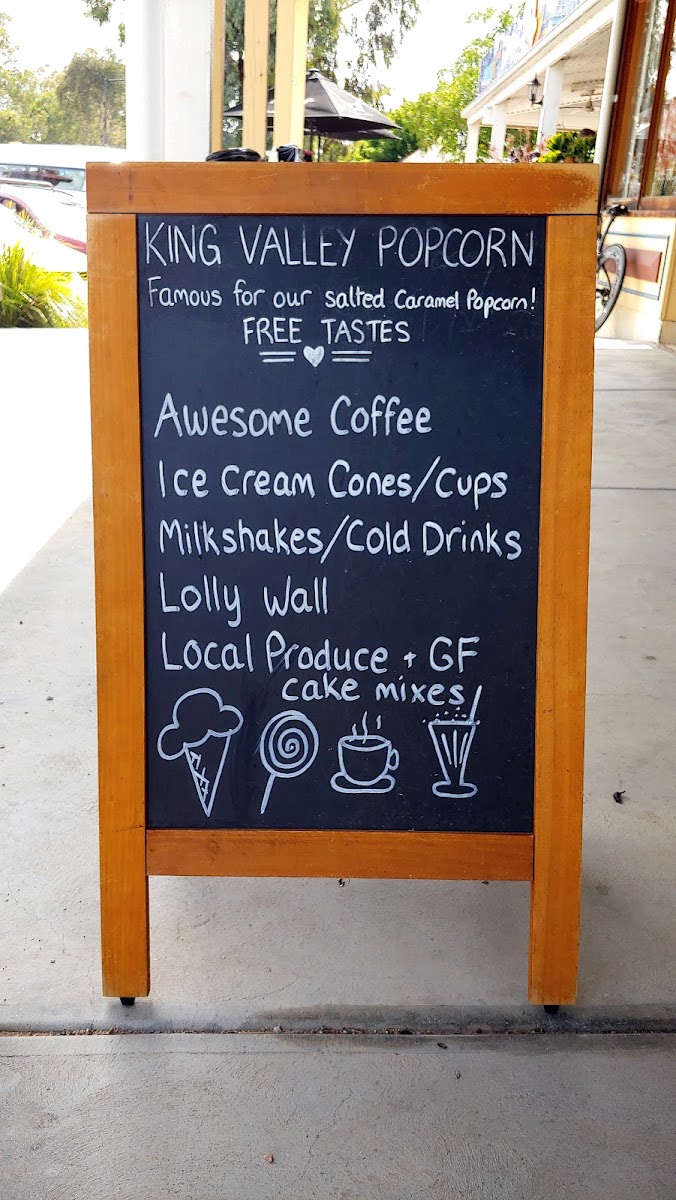 KING VALLEY POPCORN
Famous for our salted Caramel Popcorn!
FREE TASTES
Awesome Coffee
Ice Cream Cones/Cups
Milkshakes/Cold Drinks
Lolly Wall
Local Produce + GF
cake mixes